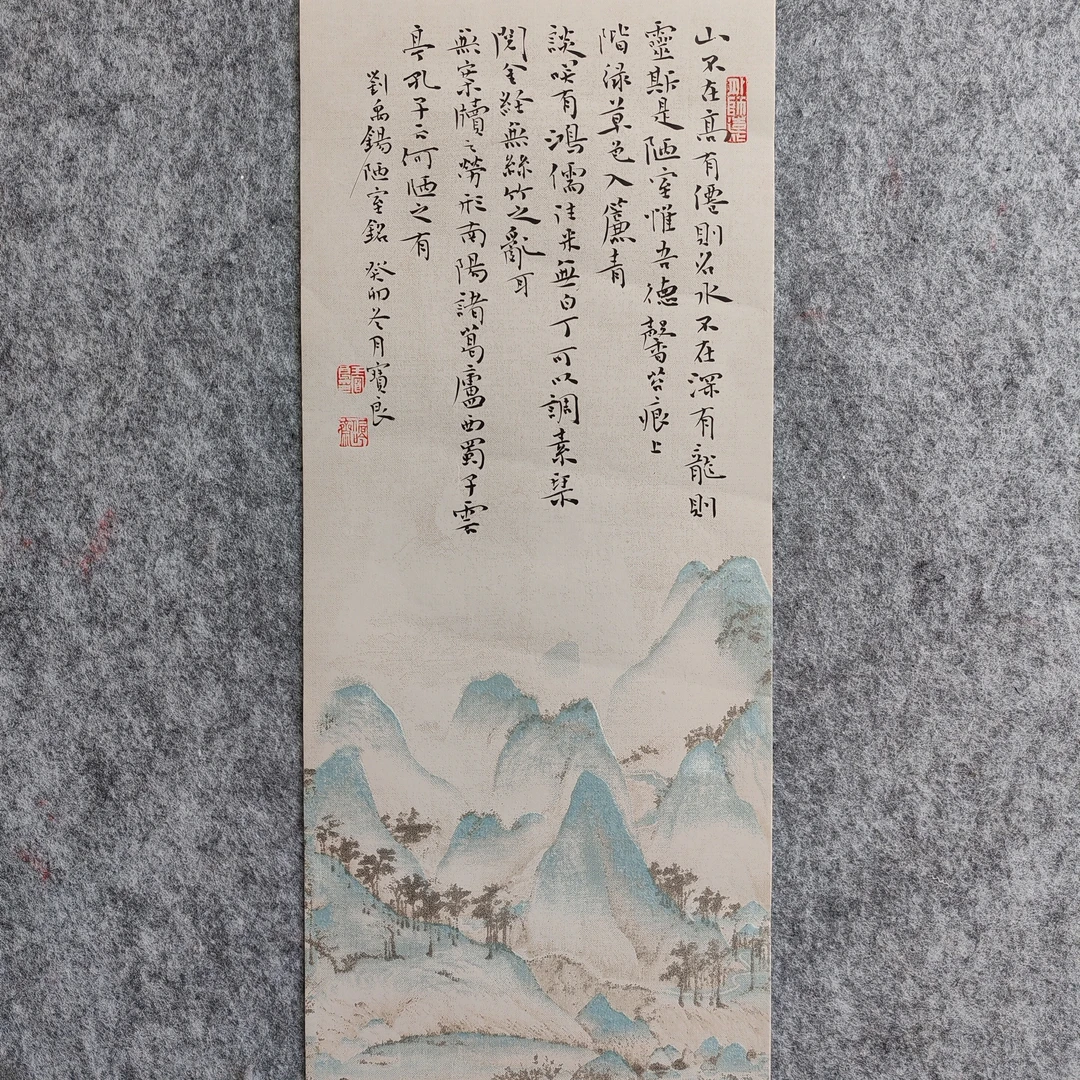 山不在高有僊則名水不在深有龍則
靈斯是陋室惟吾德馨苔痕上
階淥草色入簾青
談咲有鴻儒往来無白丁可以調素琹
閱金経無絲竹之亂耳
無案牘之勞形南陽諸葛廬西蜀子雲
亭孔子云何陋之有
劉禹錫陋室銘 癸卯冬月寶良